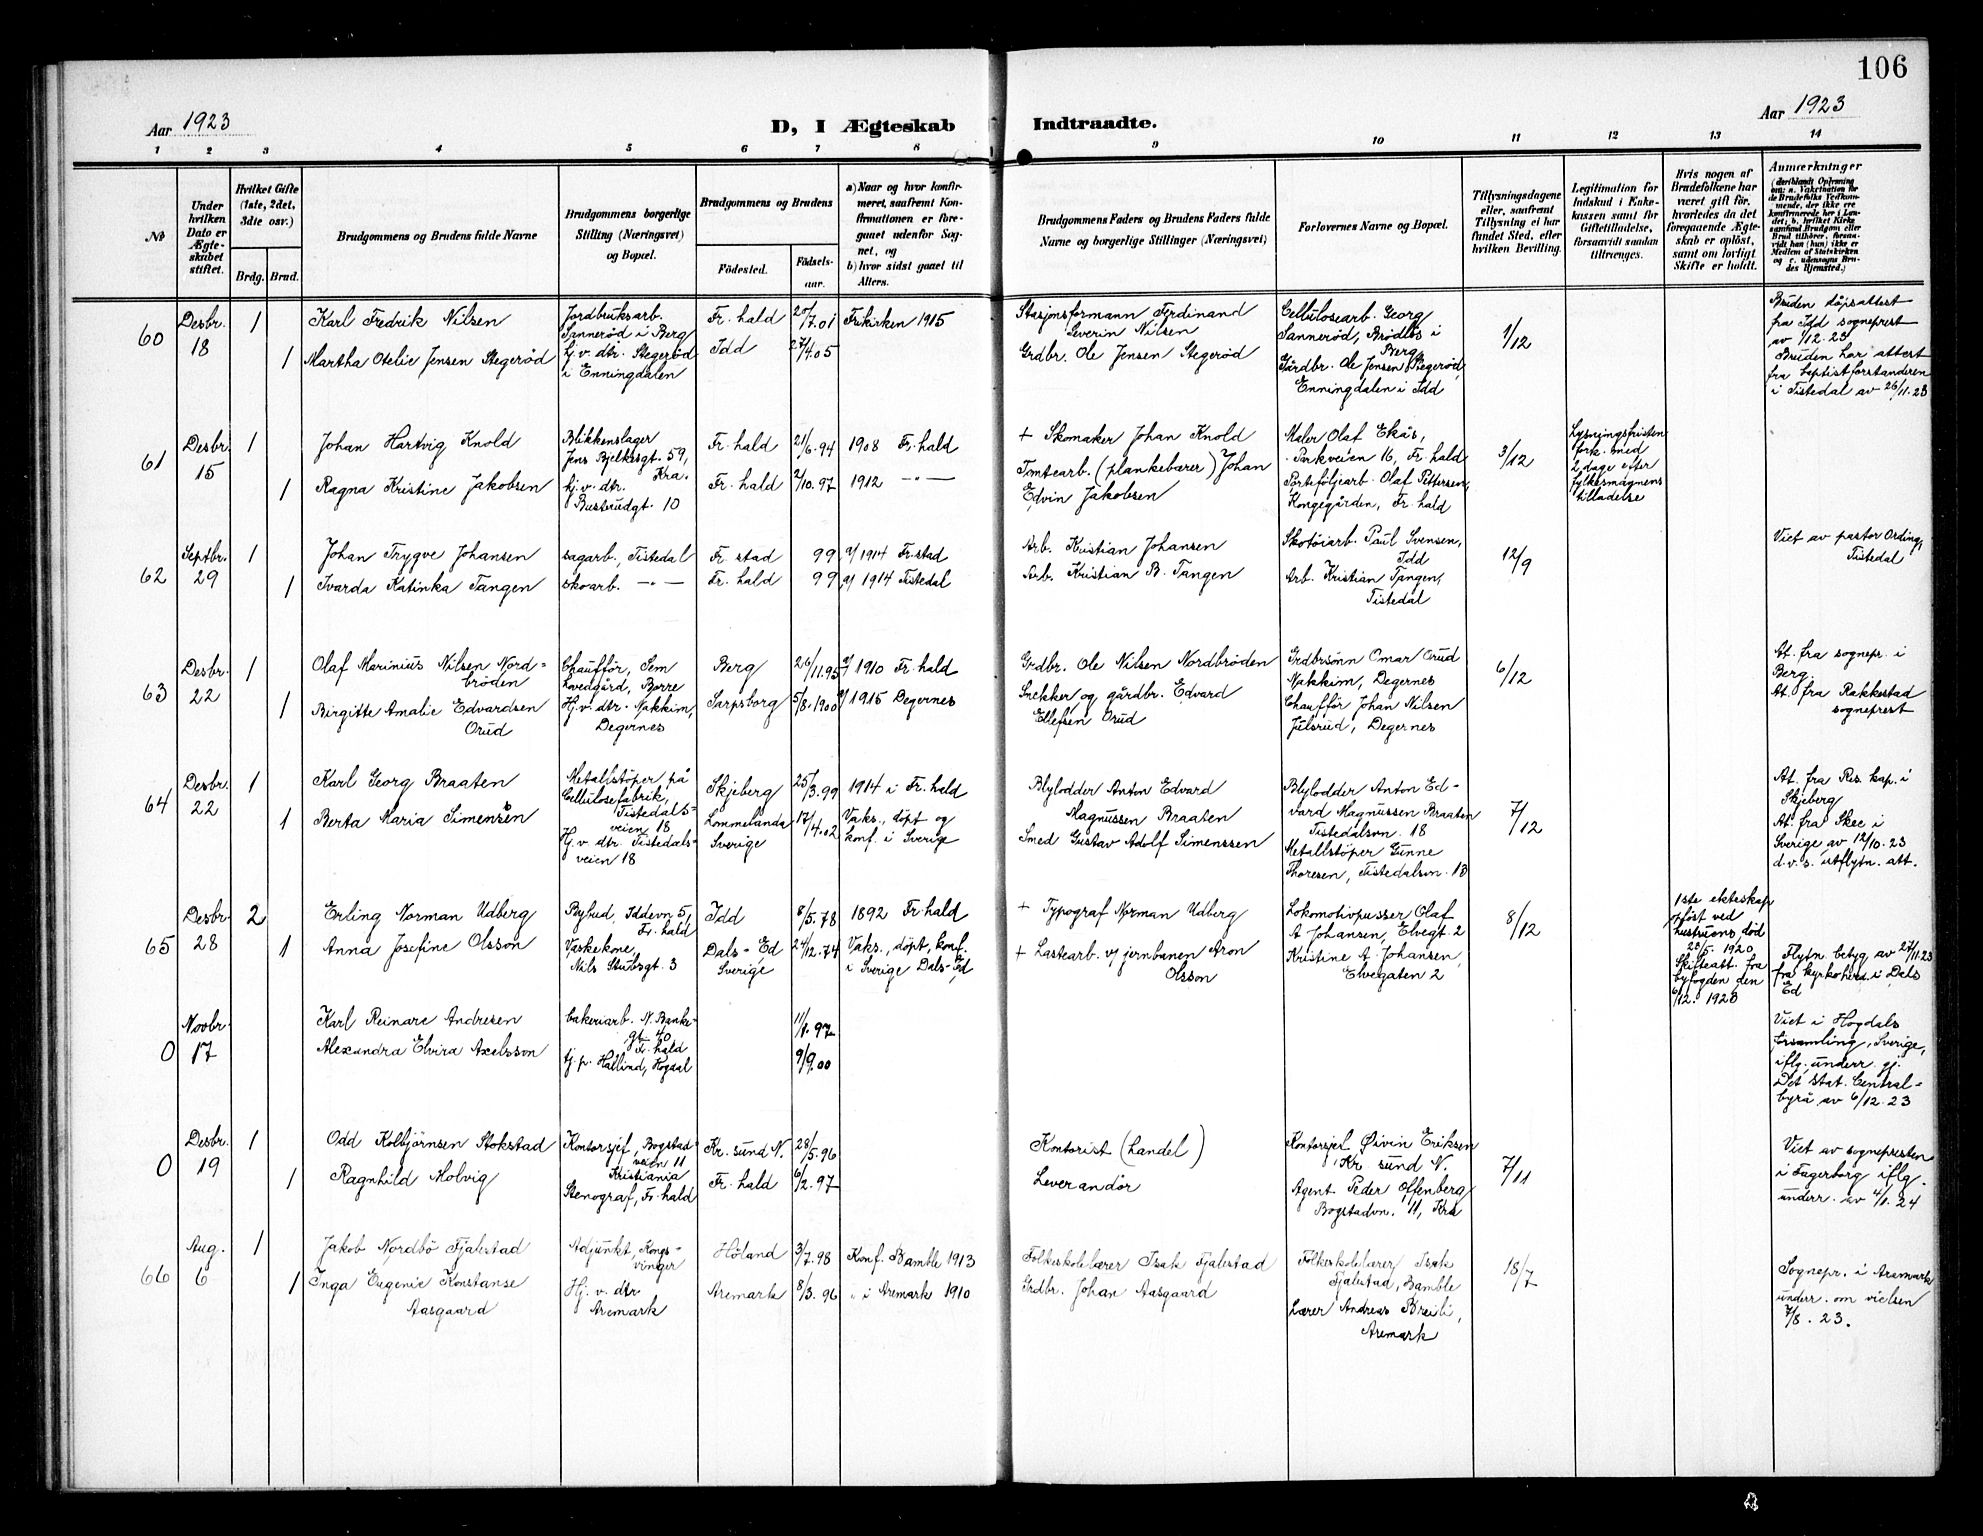 106
Aar 1923
D, I Ægteskab
Indtraadte.
Aar 1923
1 2 3 4 5 6 7 8 9 10 11 12 13 14
No.
Under hvilken Dato er Ægteskabet stiftet.
Hvilket Gifte (1ste, 2det, 3die osv.)
Brdg. Brud.
Brudgommens og Brudens fulde Navne
Brudgommens borgerlige Stilling (Næringsvei) og Bopæl.
Brudgommens og Brudens
Födested.
Födselsaar.
a) Naar og hvor konfirmeret, saafremt Konfirmationen er foregaaet udenfor Sognet, og
b) hvor sidst gaaet til Alters.
Brudgommens Faders og Brudens Faders fulde Navne og borgerlige Stillinger (Næringsvei)
Forlovernes Navne og Bopæl.
Tillysningsdagene eller, saafremt Tillysning ei har fundet Sted, efter hvilken Bevilling.
Legitimation for Indskud i Enkekassen samt for Giftetilladelse, forsaavidt saadan tiltrænges.
Hvis nogen af Brudefolkene har været gift för, hvorledes da det foregaaende Ægteskab er oplöst, samt om lovligt Skifte er holdt.
Anmærkninger
(deriblandt Oplysning om: a. Vakcination for de Brudefolks Vedkommende, der ikke ere konfirmerede her i Landet; b. hvilket Kirkesamfund Brudgom eller Brud tilhörer, forsaavidt han (hun) ikke er Medlem af Statskirken og c. udensogns Brudes Hjemsted.)
60
Desbr. 18
1
Karl Fredrik Nilsen
Jordbruksarb. Sannerød i Berg
Fr. hald
20/7.01
Frikirken 1915
Stasjonsformann Ferdinand Severin Nilsen
Cellulosearb. Georg Sannerød, Brødløs i Berg
1/12
Bruden døpsattest fra Idd sogneprest av 1/12.23
1
Martha Otelie Jensen Stegerød
hj. v. dtr. Stegerød i Enningdalen
Idd
27/4.05
Grdbr. Ole Jensen Stegerød
Gårdbr. Ole Jensen Stegerød, Enningdalen i Idd
Bruden har attest fra baptistforstanderen i Tistedal av 26/11.23
61
Desbr. 15
1
Johan Hartvig Knold
Blikkenslager Jens Bjelkesgt. 59, Kra.
Fr. hald
21/6.94
1908 Fr. hald
+ Skomaker Johan Knold
Maler Olaf Ekås, Parkveien 16, Fr. hald
3/12
Lysningsfristen fork. med 2 dage efter fylkesmagnens tilladelse
1
Ragna Kristine Jakobsen
hj. v. dtr. Busterudgt. 10
Fr. hald
2/10.97
1912 -"-
Tomtearb. (plankebærer) Johan Edvin Jakobsen
Porteføljearb. Olaf Pettersen, Kongegården, Fr. hald
62
Septbr. 29
1
Johan Trygve Johansen
sagarb., Tistedal
Fr. stad
99
1914 Fr. stad
Arb. Kristian Johansen
Skotøiarb. Paul Svensen, Idd
12/9
Viet av pastor Ording, Tistedal
1
Ivarda Katinka Tangen
skoarb. -"-
Fr. hald
99
1914 Tistedal
Arb. Kristian B. Tangen
Arb. Kristian Tangen, Tistedal
63
Desbr. 22
1
Olaf Marinius Nilsen Nordbrøden
Chauffør, Sem Hovedgård, Borre
Berg
26/11.95
1910 Fr. hald
Grdbr. Ole Nilsen Nordbrøden
Grdbrsønn Omar Orud Nakkim, Degernes
6/12
At. fra sognepr. i Berg
1
Birgitte Amalie Edvardsen Orud
Hj. v. dtr. Nakkim, Degernes
Sarpsborg
5/8.1900
1915 Degernes
Snekker og gårdbr. Edvard Ellefsen Orud
Chauffør Johan Nilsen Julsrud, Degernes
At. fra Rakkestad sogneprest
64
Desbr. 22
1
Karl Georg Braaten
Metallstøper på Cellulosefabrik, Tistedalsveien 18
Skjeberg
25/3.99
1914 i Fr. hald
Blylodder Anton Edvard Magnussen Braaten
Blylodder Anton Edvard Magnussen Braaten Tistedalsvn. 18
7/12
At. fra Res. kap. i Skjeberg
1
Berta Maria Simensen
Hj. v. dtr. Tistedalsveien 18
Lommelanda Sverige
17/4.02
Vaks., døpt og konf. i Sverige
Smed Gustav Adolf Simenssen
Metallstøper Gunne Thoresen, Tistedalsvn. 18
At. fra Skee i Sverige av 12/10.23 d.v.s. utflytn. att.
65
Desbr. 28
2
Erling Norman Udberg
Bybud, Iddevn 5, Fr. hald
Idd
8/5.78
1892 Fr. hald
+ Typograf Norman Udberg
Lokomotivpusser Olaf A Johansen, Elvegt. 2
8/12
1ste ekteskap opløst ved hustruens død 28/5.1920 Skifteatt. fra byfogden den 6/12.1923
1
Anna Josefine Olsson
Vaskekone, Nils Stubsgt. 3
Dals-Ed Sverige
24/12.74
Vaks., døpt, konf. i Sverige Dals-Ed
+ Lastearb. v/ jernbanen Aron Olsson
Kristine A. Johansen, Elvegaten 2
Flytn. betyg av 27/11.23 fra kyrkoherd. i Dals Ed
0
Novbr. 17
Karl Reinare Andresen
bakeriarb. N. Bankegt. 40 Fr. hald
11/1.97
Alexandra Elvira Axelsson
tj. p. Hällind, Hogdal
9/9.00
Viet i Hogdals forsamling, Sverige, iflg. underr. gj. Det stat. Centralbyrå av 6/12.23
0
Desbr. 19
1
Odd Kolbjørnsen Stokstad
Kontorsjef, Bogstadveien 11 Kristiania
Kr. sund N.
28/5.96
Kontorist (handel)
Kontorsjef Øivin Eriksen Kr sund N.
7/11
Viet av sognepresten i Fagerborg iflg. underr. av 4/1.24
1
Ragnhild Molvig
Stenograf, Fr. hald
Fr. hald
6/2.97
Leverandør
Agent Peder Offenberg Bogstadvn. 11, Kra
66
Aug. 6
1
Jakob Nordbö Fjalestad
Adjunkt, Kongsvinger
Höland
3/7.98
Konf. Bamble 1913
Folkeskolelærer Isak Fjalestad
Folkeskolelærer Isak Fjalestad, Bamble
18/7
Sognepr. i Aremark underr. om vielsen 7/8.23.
1
Inga Eugenie Konstanse Aasgaard
Hj. v. dtr Aremark
Aremark
8/3.96
" i Aremark 1910
Grdbr. Johan Aasgaard
Lærer Andreas Breili, Aremark